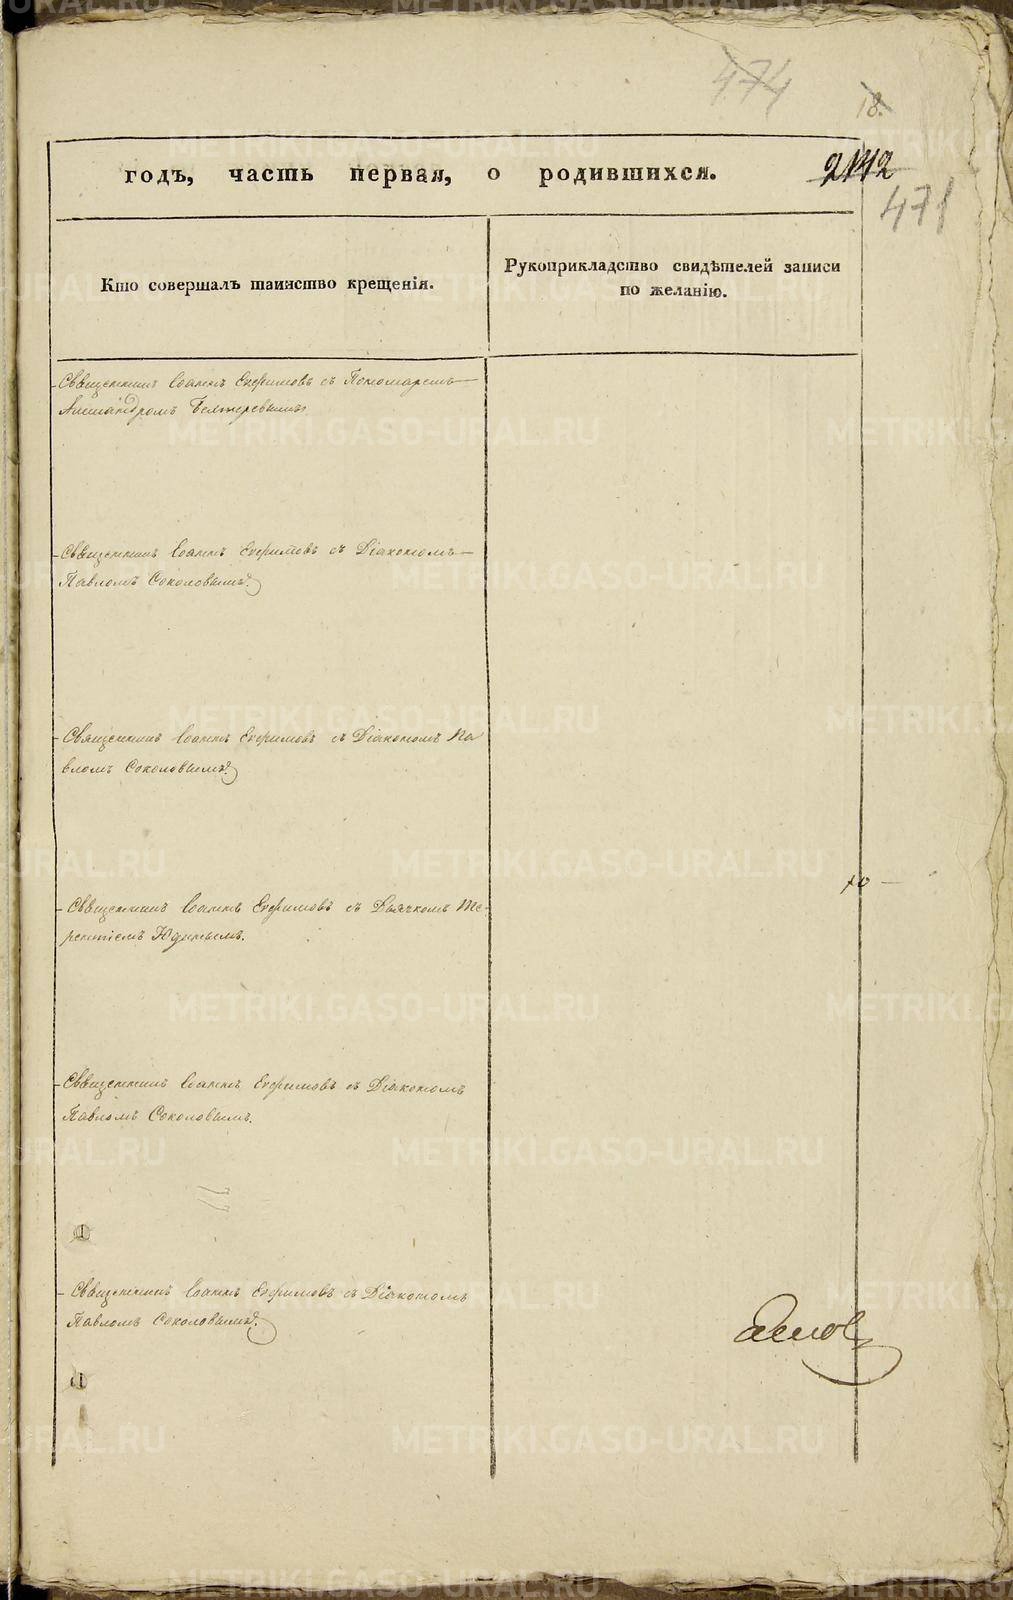 474
18.
годъ, часть первая, о родившихся.
2142
471
Кто совершалъ таинство крещенія.
Рукоприкладство свидѣтелей записи
по желанію.
Священникъ Іоаннъ Ефимовъ съ Пономаремъ
Александромъ
Священникъ Іоаннъ Ефимовъ съ Діакономъ
Павломъ Соколовымъ.
Священникъ Іоаннъ Ефимовъ съ Діакономъ Па
вломъ Соколовымъ.
Священникъ Іоаннъ Ефимовъ съ Дьячкомъ Те-
рентіемъ Юдинымъ.
Священникъ Іоаннъ Ефимовъ съ Діакономъ
Павломъ Соколовымъ.
Священникъ Іоаннъ Ефимовъ съ Діакономъ
Павломъ Соколовымъ.
METRIKI.GASO-URAL.RU